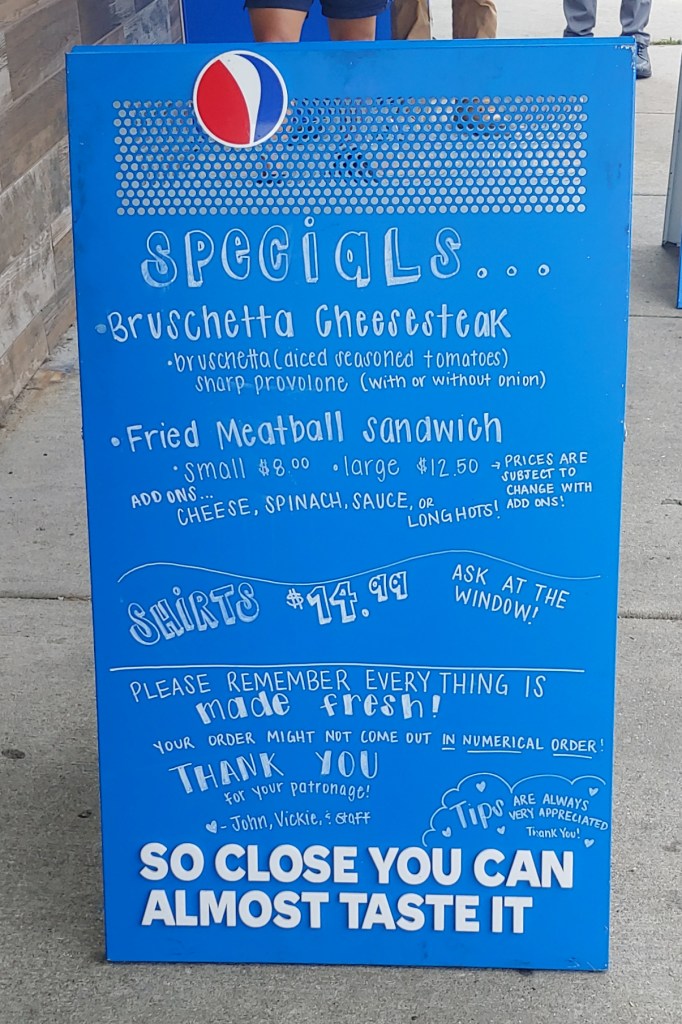 Specials...
• Bruschetta Cheesesteak
• bruschetta (diced seasoned tomatoes)
sharp provolone (with or without onion)
• Fried Meatball Sandwich
• small $8.00 • large $12.50 → PRICES ARE
SUBJECT TO
CHANGE WITH
ADD ONS!
ADD ONS...
CHEESE, SPINACH, SAUCE, OR
LONGHOTS!
SHIRTS $14.99
ASK AT THE
WINDOW!
PLEASE REMEMBER EVERYTHING IS
made fresh!
YOUR ORDER MIGHT NOT COME OUT IN NUMERICAL ORDER!
THANK YOU
for your patronage!
♥ - John, Vickie, & Staff
Tips ARE ALWAYS
VERY APPRECIATED
Thank You!
SO CLOSE YOU CAN
ALMOST TASTE IT